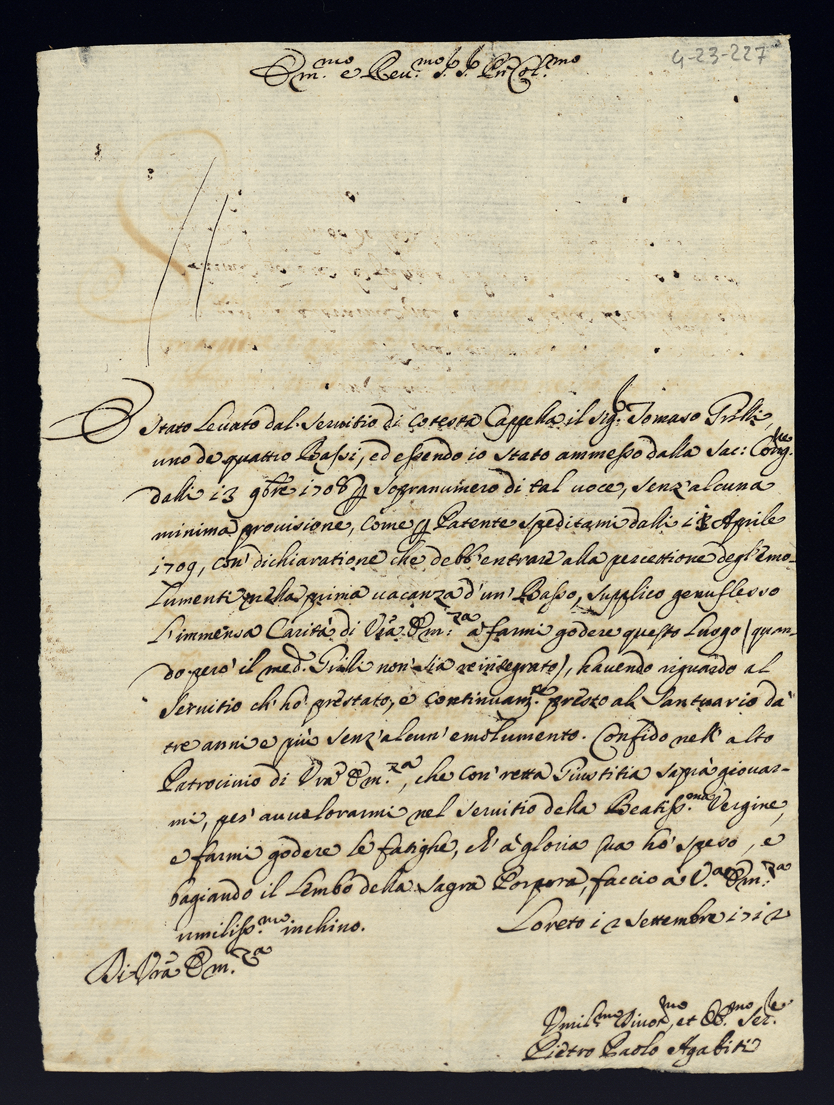 Em.mo e Reu.mo S.r S.r Pñ Col.mo
G-23-227
È Stato Leuato dal Seruitio di cotesta Cappella il Sig.r Tomaso Grilli,
uno de quattro Bassi, ed essendo io stato ammesso dalla Sac: Cong.ne
dalli 13 9bre 1708 p sopranumero di tal uoce, senz'alcuna
minima prouisione, come p Patente speditami dalli Aprile
1709, con' dichiaratione che debb'entrare alla percettione degl'Emo-
lumenti nella prima uacanza d'un' Basso, supplico genuflesso
l'immensa Carità di Vrã Em.za à farmi godere questo Luogo (quan-
do però il med. Grilli non' sia reintegrato), hauendo riguardo al
Seruitio ch' hò prestato, e continuam.te presto al Santuario da
tre anni e più senz'alcun' emolumento. Confido nell' alto
Patrocinio di Vrã Em.za, che con' retta Giustitia saprà giouar-
mi, per' auualorarmi nel seruitio della Beatiss.ma Vergine,
e farmi godere le fatighe, ch' à gloria sua hò speso, e
bagiando il Lembo della Sagra Porpora, faccio à V.a Em.za
umiliss.mo inchino. Loreto 12 Settembre 1712
Di Vrã Em.za
Vmil.mo Diuot.mo, et Obb.mo Ser.re
Pietro Paolo Agabiti